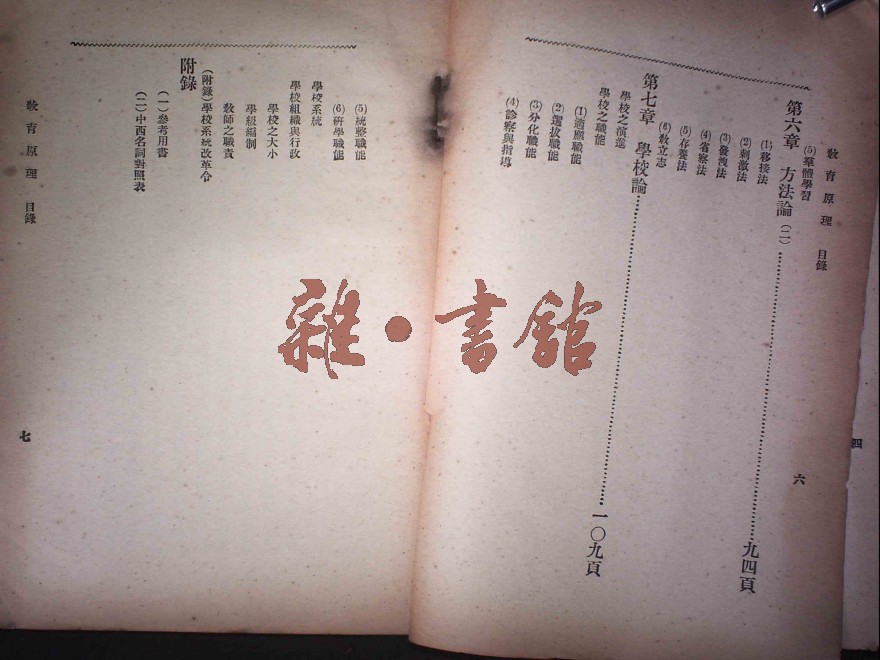 教育原理 目錄
(5)羣體學習
第六章 方法論(二)……九四頁
(1)移接法
(2)刺激法
(3)發洩法
(4)省察法
(5)存養法
(6)敎立志
第七章 學校論……一〇九頁
學校之演進
學校之職能
(1)適應職能
(2)選拔職能
(3)分化職能
(4)診察與指導
六
(5)統整職能
(6)研學職能
學校系統
學校組織與行政
學校之大小
學級編制
敎師之職責
(附錄)學校系統改革令
附錄
(一)參考用書
(二)中西名詞對照表
教育原理 目錄
七
四
雜·書館